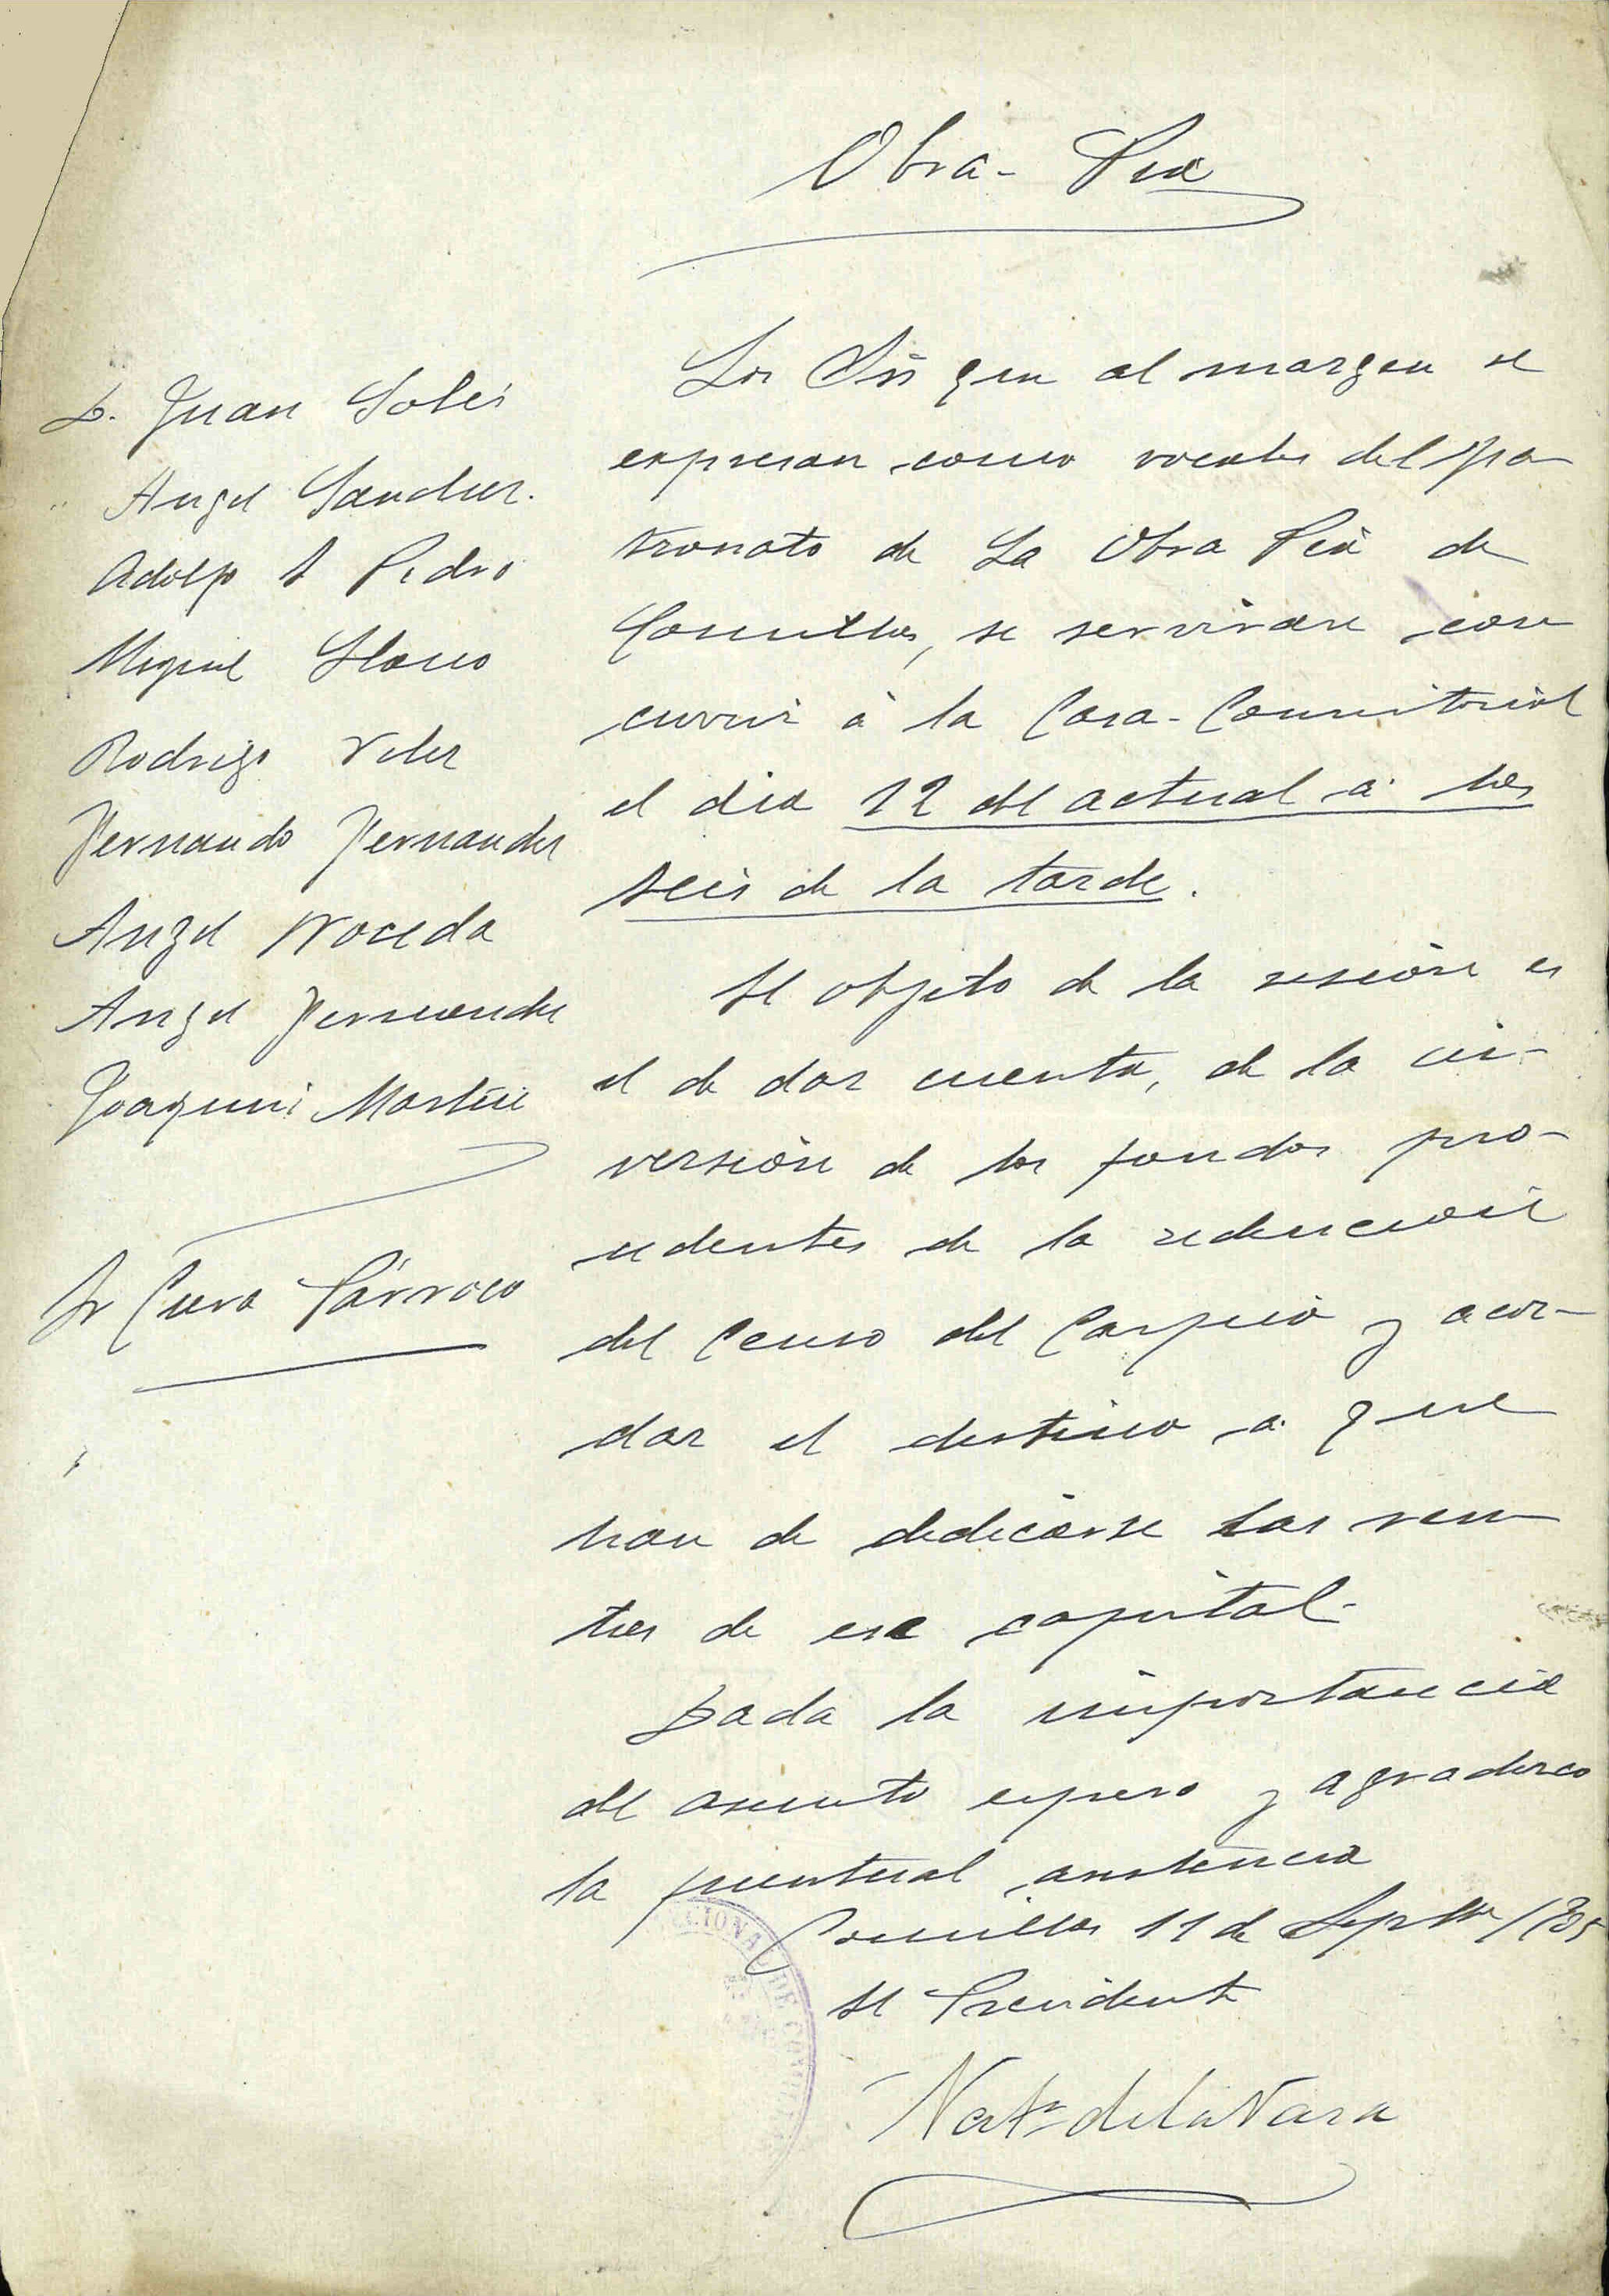 Obra-Pia
D. Juan Solis
" Angel Sanchez.
Adolfo S Pedro
Miguel Llano
Rodrigo Velez
Fernando Fernandez
Angel Noceda
Angel Fernandez
Joaquin Martin
Sr Cura Párroco
Los Srs que al margen se
expresan como vocales del pa
tronato de La Obra Pia de
Comillas, se servirán con
currir á la Casa-Consistorial
el dia 12 del actual á las
seis de la tarde.
El objeto de la sesión es
el de dar cuenta, de la in-
versión de los fondos pro-
cedentes de la redención
del Censo del Carpio y acor-
dar el destino a que
han de dedicarse las ren
tas de ese capital.
Dada la importancia
del asunto espero y agradezco
la puntual asistencia
Comillas 11 de Sepbre
El Presidente
de la Vara